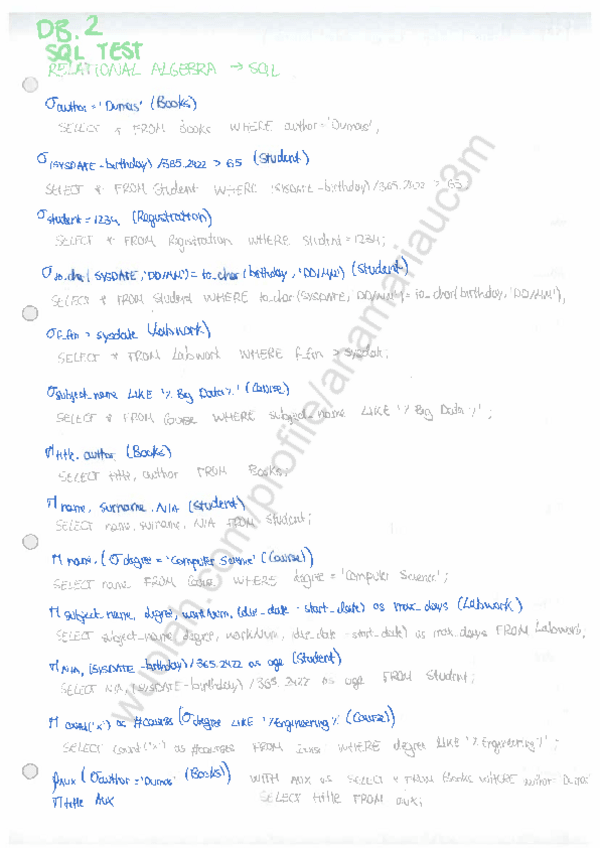 DB.2
SQL TEST
RELATIONAL ALGEBRA → SQL
σ author = 'Dumas' (Books)
SELECT * FROM books WHERE author = 'Dumas';
σ (SYSDATE - birthday) / 365.2422 > 65 (Student)
SELECT * FROM Student WHERE (SYSDATE - birthday) / 365.2422 > 65;
σ student = 1234 (Registration)
SELECT * FROM Registration WHERE student = 1234;
σ to_char(SYSDATE, 'DD/MM') = to_char(birthday, 'DD/MM') (Student)
SELECT * FROM Student WHERE to_char(SYSDATE, 'DD/MM') = to_char(birthday, 'DD/MM');
σ f_fin > sysdate (Labwork)
SELECT * FROM Labwork WHERE f_fin > sysdate;
σ subject_name LIKE '% Big Data %' (Course)
SELECT * FROM Course WHERE subject_name LIKE '% Big Data %';
π title, author (Books)
SELECT title, author FROM Books;
π name, surname, NIA (Student)
SELECT name, surname, NIA FROM Student;
π name, (σ degree = 'Computer Science' (Course))
SELECT name FROM Course WHERE degree = 'Computer Science';
π subject_name, degree, workNum, (due_date - start_date) as max_days (Labwork)
SELECT subject_name, degree, workNum, (due_date - start_date) as max_days FROM Labwork;
π NIA, (SYSDATE - birthday) / 365.2422 as age (Student)
SELECT NIA, (SYSDATE - birthday) / 365.2422 as age FROM Student;
π count('x') as #courses (σ degree LIKE '% Engineering %' (Course))
SELECT count('x') as #courses FROM Course WHERE degree LIKE '% Engineering %';
ρ Aux (σ author = 'Dumas' (Books)) WITH Aux as SELECT * FROM Books WHERE author = 'Dumas'
π title Aux SELECT title FROM aux;
wuolah.com/profile/anamariauc3m